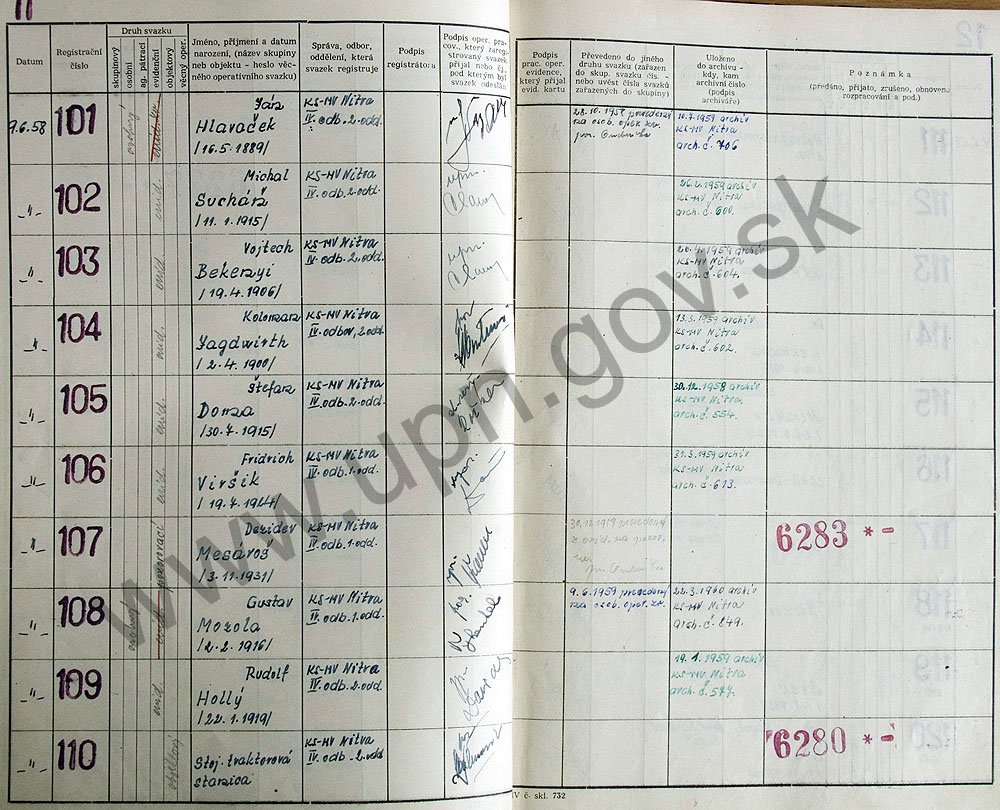 11
Datum
Registrační
číslo
Druh svazku
skupinový
osobní
ag. pátrací
evidenční
objektový
věcný oper.
Jméno, příjmení a datum
narození, (název skupiny
neb objektu - heslo věc-
ného operativního svazku)
Správa, odbor,
oddělení, která
svazek registruje
Podpis
registrátora
Podpis oper. pra-
cov., který zareg-
istrovaný svazek
přijal nebo čj.
pod kterým byl
svazek odeslán
Podpis
prac. oper.
evidence,
který přijal
evid. kartu
Převedeno do jiného
druhu svazku (zařazen
do skup. svazku čís. -
nebo uvést čísla svazků
zařazených do skupiny)
Uloženo
do archivu -
kdy, kam
archivní číslo
(podpis
archiváře)
Poznámka
(předáno, přijato, zrušeno, obnoveno
rozpracování a pod.)
9.6.58 101 osobný Ján
Hlavaček
/16.5.1889/
KS-MV Nitra
IV. odb. 2. odd.
10.7.1959 archiv
KS MV Nitra
arch. č. 706
-"- 102 evid. Michal
Suchán
/11.1.1915/
KS-MV Nitra
IV. odb. 2. odd.
26.2.1959 archiv
KS MV Nitra
arch. č. 600.
-"- 103 evid. Vojtech
Bekényi
/19.4.1906/
KS-MV Nitra
IV. odb. 2. odd.
KS-MV Nitra
arch. č. 604.
-"- 104 evid. Koloman
Jagdwirth
/2.4.1900/
KS-MV Nitra
IV. odbor, 2. odd.
13.3.1959 archiv
KS MV Nitra
arch. č. 602.
-"- 105 evid. Štefan
Donza
/30.7.1915/
KS-MV Nitra
IV. odb. 2. odd.
30.12.1958 archiv
KS MV Nitra.
arch. č. 554.
-"- 106 evid. Fridrich
Viršík
/19.7.1924/
KS-MV Nitra
IV. odb. 1. odd.
31.3.1959 archiv
KS-MV Nitra
arch. č. 613.
-"- 107 pozorovací Dezider
Mesároš
/3.11.1931/
KS-MV Nitra
IV. odb. 1. odd.
6283 * -
-"- 108 osobný Gustav
Mozola
/2.2.1916/
KS-MV Nitra
IV. odb. 1. odd.
9.6.1959 prevedený
na osob. oper. zv.
22.3.1960 archiv
KS-MV Nitra
arch. č. 849.
-"- 109 evid. Rudolf
Hollý
/22.1.1919/
KS-MV Nitra
IV. odb. 2. odd.
19.1.1959 archiv
KS-MV Nitra
arch. č. 577.
-"- 110 objektový
Stoj. traktorová
stanica
KS-MV Nitra
IV. odb. 2. odd.
6280 * -
IV č. skl. 732
www.upn.gov.sk